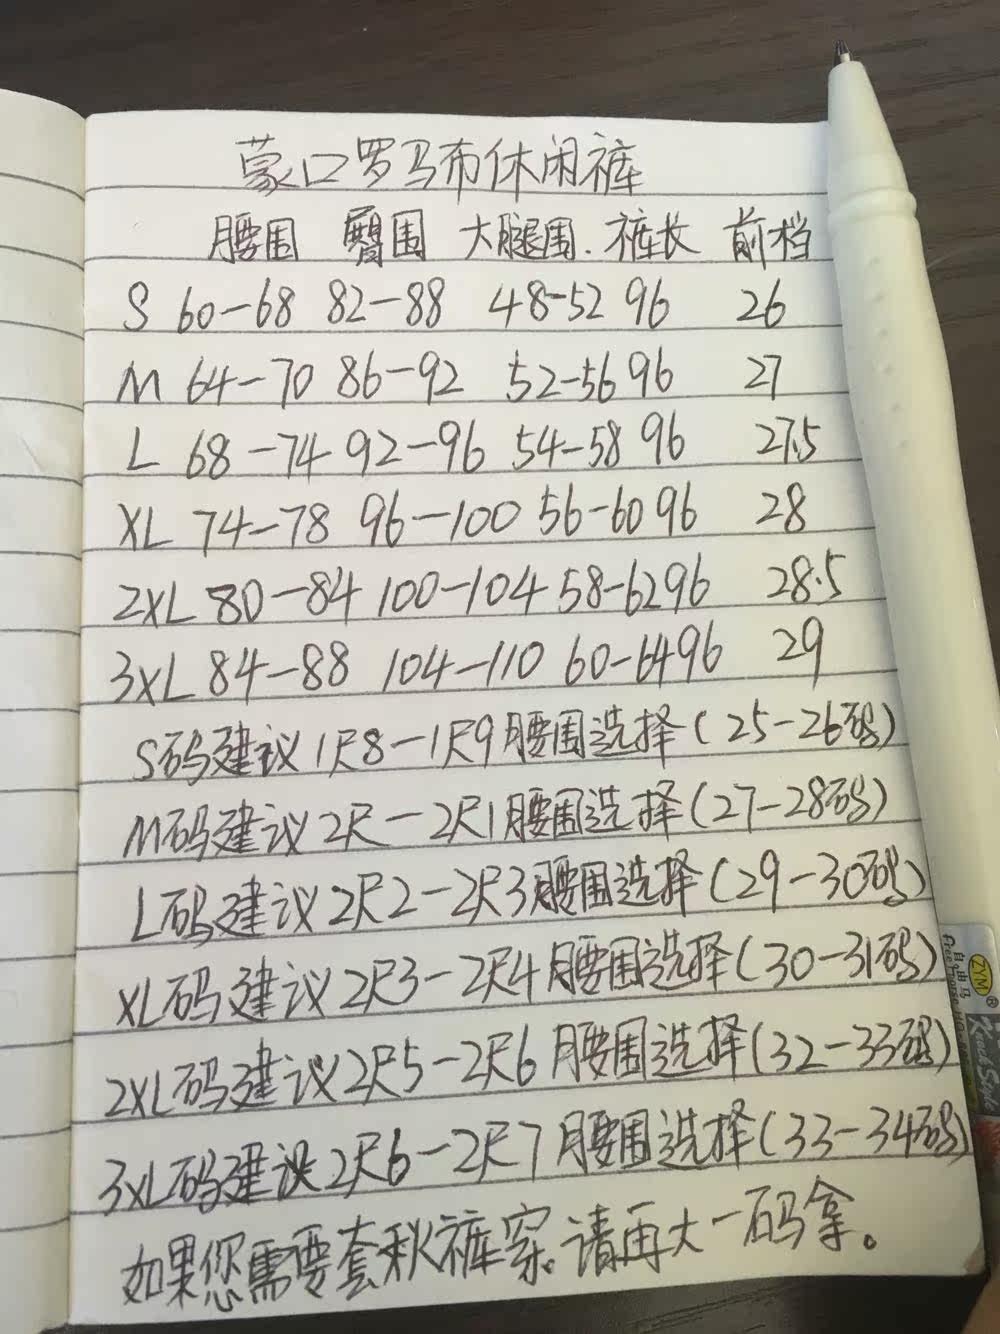 蒙口罗马布休闲裤
腰围 臀围 大腿围. 裤长 前档
S 60-68 82-88 48-52 96 26
M 64-70 86-92 52-56 96 27
L 68-74 92-96 54-58 96 27.5
XL 74-78 96-100 56-60 96 28
2XL 80-84 100-104 58-62 96 28.5
3XL 84-88 104-110 60-64 96 29
S码建议1尺8-1尺9腰围选择(25-26码)
M码建议2尺-2尺1腰围选择(27-28码)
L码建议2尺2-2尺3腰围选择(29-30码)
XL码建议2尺3-2尺4腰围选择(30-31码)
2XL码建议2尺5-2尺6腰围选择(32-33码)
3XL码建议2尺6-2尺7腰围选择(33-34码)
如果您需要套秋裤穿。请再大一码拿。
ZYM®
自由马